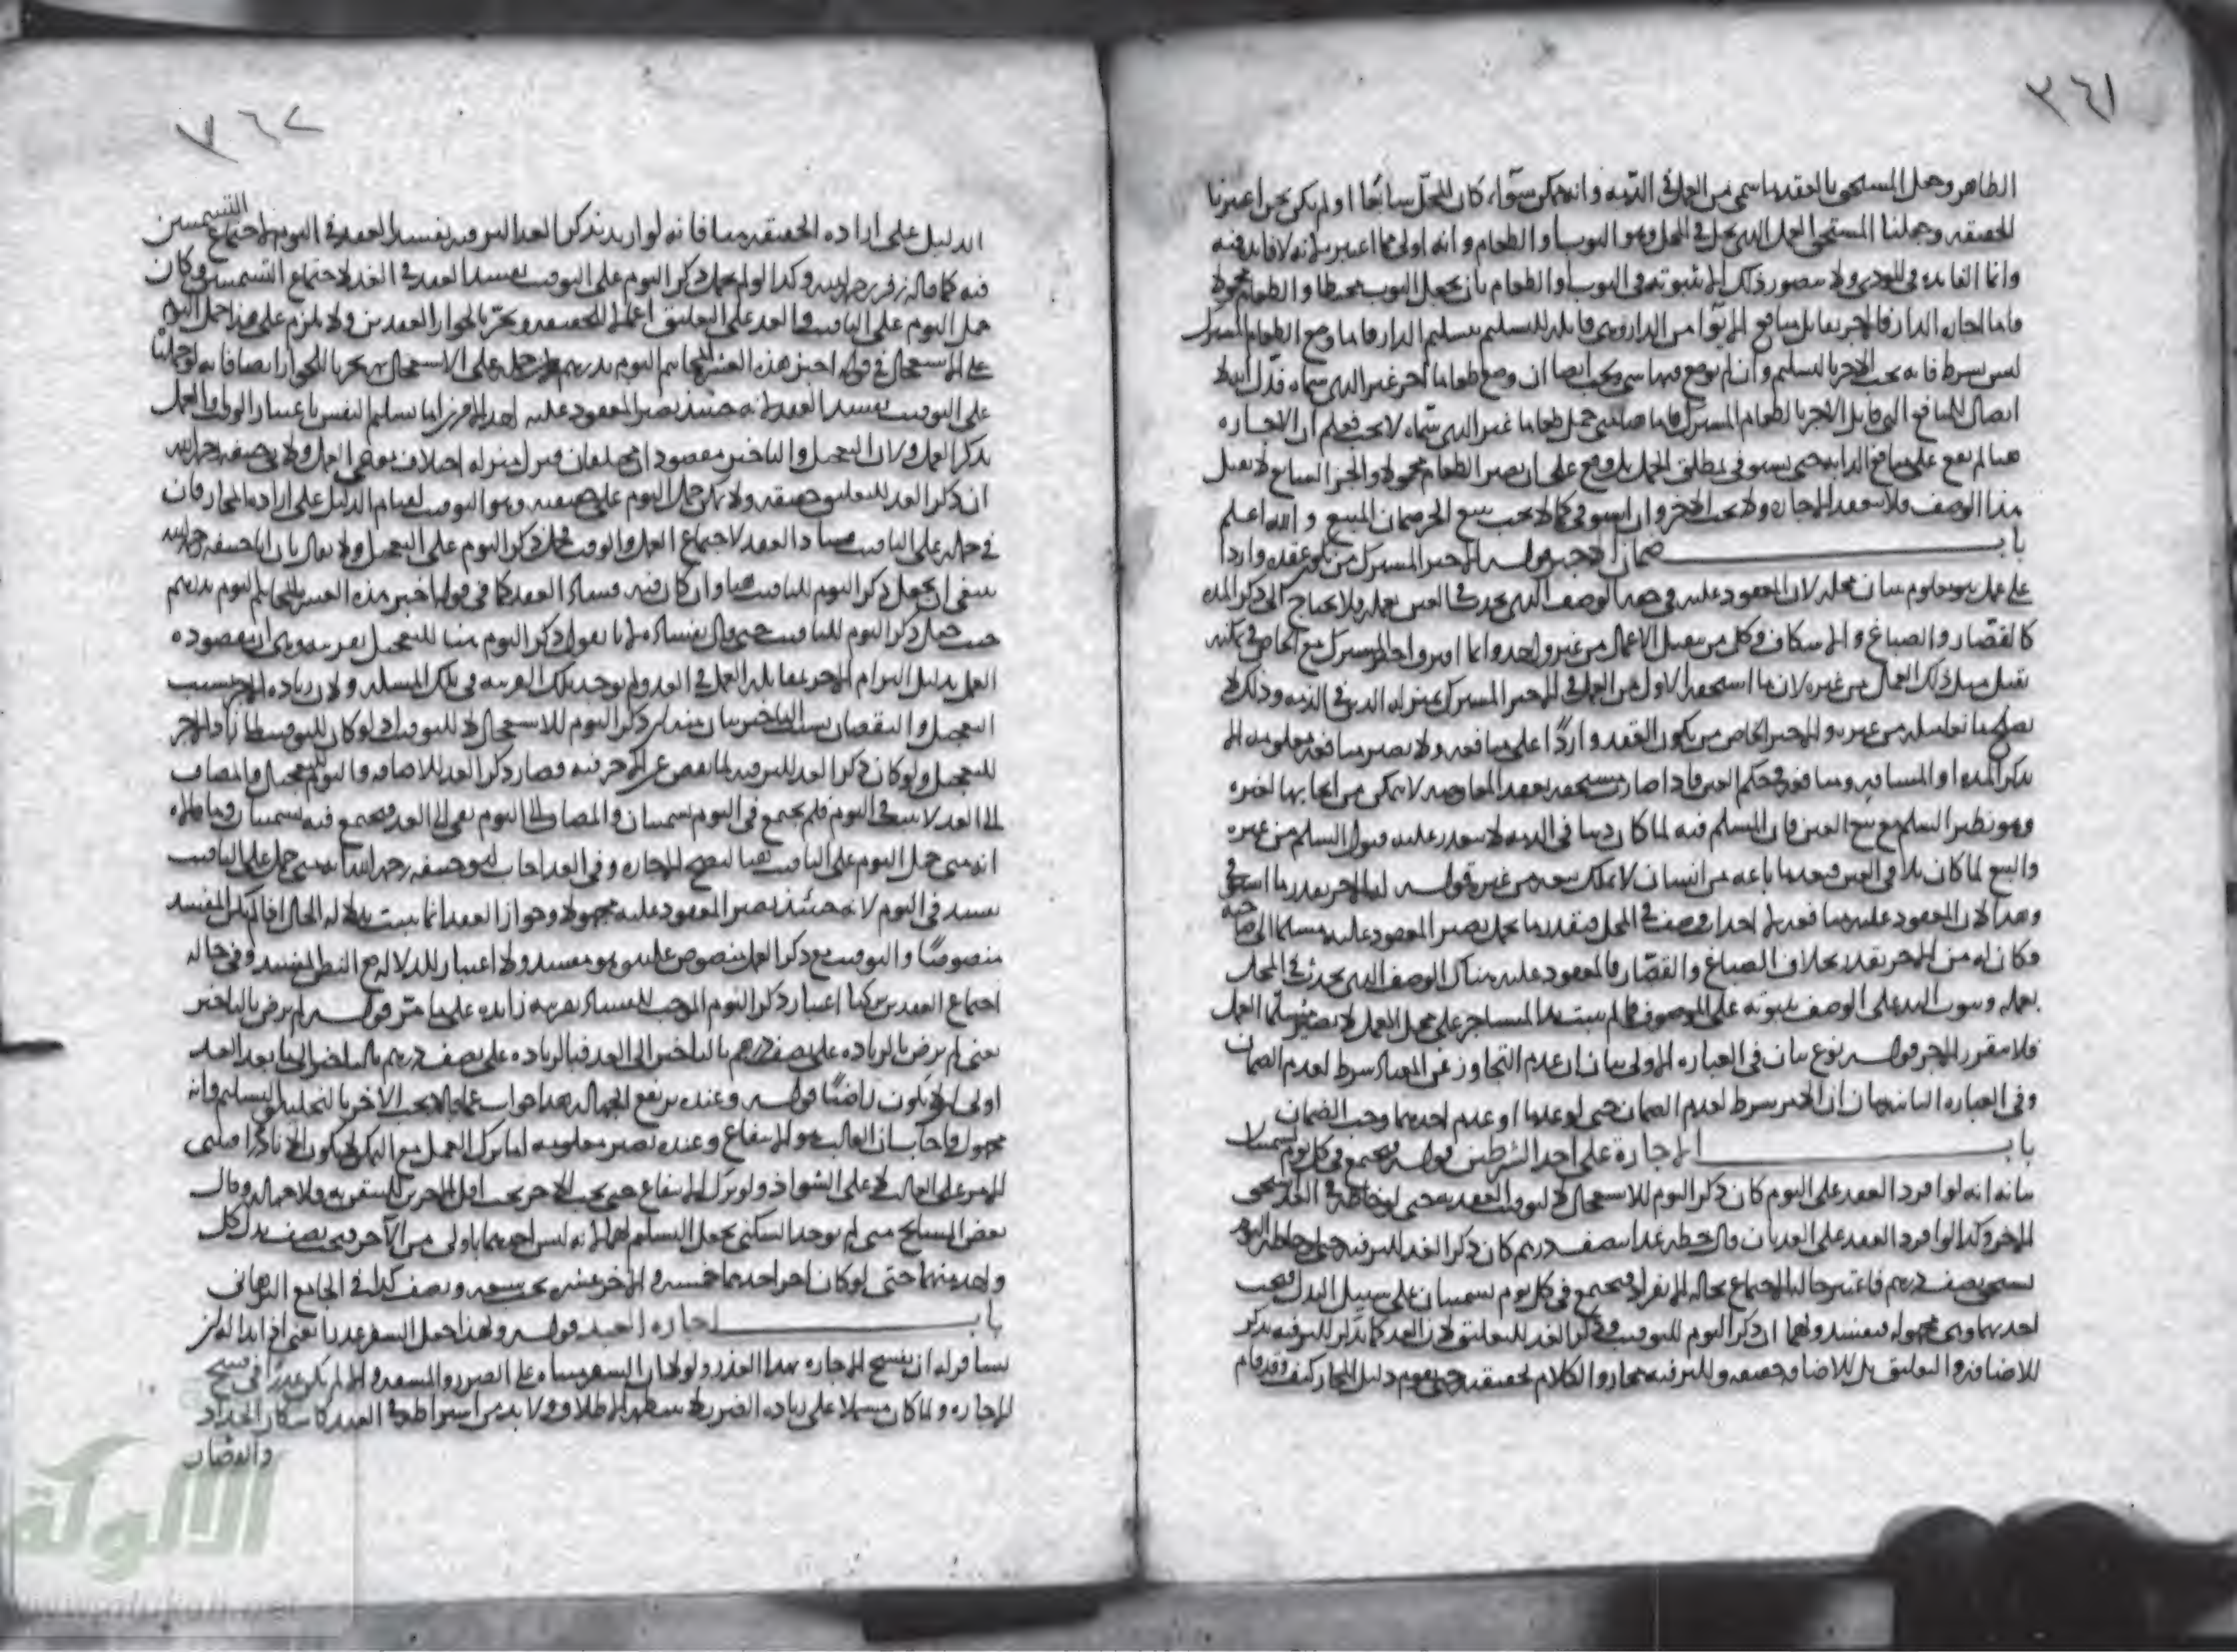 ٣٦١
الظاهر وجعل المستحق بالعقد ما سمى من العمل في الذمة وانه ممكن سواء كان المحل سابقا او لم يكن نحن اعتبرنا
الحقيقة وجعلنا المستحق العمل الذي يحل في المحل وهو الثوب او الطعام وانه اولى مما اعتبر لانه لا فائدة فيه
وانما الفائدة في المودى ولا يتصور ذلك الا بثبوته في الثوب او الطعام بان يجعل الثوب مخيطا والطعام محمولا
فاما اجارة الدار فالاجر يقابل منافع من الدار وهي قابلة للتسليم بتسليم الدار فاما وضع الطعام المشترك
ليس بشرط فانه يجب الاجر بالتسليم وان لم يوضع فيها شيء ويجب ايضا ان وضع طعاما اخر غير الذي سماه فدل انه لا
اتصال للمنافع التي قابل الاجر بالطعام المشترك فاما هنا متى حمل طعاما غير الذي سماه لا يجب فعلم ان الاجارة
هنا لم يقع على منافع الدابة حتى يستوفى بمطلق الحمل بل وقع على ان يصير الطعام محمولا والجزء الشايع لا يقبل
هذا الوصف فلا ينعقد الاجارة ولا يجب الاجر وان استوفى كما لا يجب ببيع الحر ضمان المبيع والله اعلم
باب ضمان الاجير قوله الاجير المشترك من يكون عقده واردا
على عمل هو معلوم ببيان محله لان المعقود عليه في حقه الوصف الذي يحدث في العين بعمله ولا يحتاج الى ذكر المدة
كالقصار والصباغ والاسكاف وكل من يقبل الاعمال من غير واحد وانما المشترك مع الخاص
تقبل مثل ذلك العمل من غيره لان ما استحقه الاول من العمل في الاجير المشترك بمنزلة الدين في الذمة وذلك لا
من غيره والاجير الخاص من يكون العقد واردا على منافعه ولا يصير منافعه معلومة الا
بذكر المدة او المسافة ومنافعه في حكم العين فاذا صار مستحقة بعقد المعاوضة لا يتمكن من ايجابها لغيره
وهو نظير السلم مع بيع العين فان المسلم فيه لما كان دينا في الذمة لا يتعذر عليه قبول السلم من غيره
والبيع لما كان يلاقي العين فبعد ما باعه من انسان لا يملك بيعه من غيره قوله
وهذا لان المعقود عليه منافعه
وكان له من الاجر بقدره بخلاف الصباغ والقصار فالمعقود عليه هناك الوصف الذي يحدث في المحل
بعمله وثبوت اليد على الوصف بثبوته على الموصوف فما لم يثبت يد المستاجر على محل العمل لا يصير مسلما العمل
فلا يتقرر الاجر قوله نوع بيان في العبارة الاولى بيان ان عدم التجاوز عن المعتاد شرط لعدم الضمان
وفي العبارة الثانية بيان ان الاذن شرط لعدم الضمان حتى لو عدما او عدم احدهما وجب الضمان
باب الاجارة على احد الشرطين قوله فيجتمع في كل يوم تسميتان
بيانه انه لو افرد العقد على اليوم كان ذكر اليوم للاستعجال لا لتوقيت العقد حتى لو خاطه في الغد يستحق
الاجر وكذا لو افرد العقد على الغد بان قال خطه غدا بنصف درهم كان ذكر الغد للترفيه حتى لو خاطه اليوم
يستحق نصف درهم فاعتبر حالة الاجتماع بحالة الانفراد فيجتمع في كل يوم تسميتان على سبيل البدل فيجب
احدهما وهي مجهولة فيفسد ولهما ان ذكر اليوم للتوقيت وذكر الغد للتعليق لان الغد كما يذكر للترفيه يذكر
للاضافة والتعليق بل للاضافة حقيقة وللترفيه مجاز والكلام لحقيقته حتى يقوم دليل المجاز كيف وقد قام
٣٦٢
الدليل على ارادة الحقيقة هنا فانه لو اريد بذكر الغد الترفيه يفسد العقد في اليوم لاجتماع التسميتين
فيه كما قاله زفر رحمه الله وكذا لو لم يحمل ذكر اليوم على التوقيت يفسد العقد في الغد لاجتماع التسميتين وكان
حمل اليوم على التاقيت والغد على التعليق اعمالا للحقيقة وتحريا لجواز العقدين ولا يلزم على هذا حمل اليوم
على الاستعجال في قوله اخبز هذه العشرة المخاتيم اليوم بدرهم على الاستعجال ثمه تحريا للجواز ايضا فانه لو حملنا
على التوقيت يفسد العقد لانه حينئذ يصير المعقود عليه احد الامرين اما تسليم النفس باعتبار الوقت او العمل
بذكر العمل ولان التعجيل والتاخير مقصودان مختلفان فنزل منزلة اختلاف نوعي العمل ولابي حنيفة رحمه الله
ان ذكر الغد للتعليق حقيقة ولا يمكن حمل اليوم على حقيقته وهو التوقيت لقيام الدليل على ارادة المجاز فان
في حمله على التاقيت فساد العقد لاجتماع العمل والوقت فحمل ذكر اليوم على التعجيل ولا يقال بان ابا حنيفة رحمه الله
ينبغي ان يجعل ذكر اليوم للتاقيت هنا وان كان فيه فساد العقد كما في قوله اخبز هذه العشرة المخاتيم اليوم بدرهم
حيث جعل ذكر اليوم للتاقيت حتى قال بفساده لانا نقول ذكر اليوم هنا للتعجيل بقرينة وهي ان مقصوده
العمل بدليل التزام الاجر بمقابلة العمل في الغد ولم يوجد تلك القرينة في تلك المسئلة ولان زيادة الاجر بسبب
التعجيل والنقصان بسبب التاخير بيان منه ان ذكر اليوم للاستعجال لا للتوقيت اذ لو كان للتوقيت لما زاد الاجر
للتعجيل ولو كان ذكر الغد للترفيه لما نقص عن الاجر فيه فصار ذكر الغد للاضافة واليوم للتعجيل والمضاف
الى الغد لا يثبت في اليوم فلم يجتمع في اليوم تسميتان والمضاف الى اليوم يبقى الى الغد فيجتمع فيه تسميتان
انه متى حمل اليوم على التاقيت هنا لتصح الاجارة وفي الغد اجاب ابو حنيفة رحمه الله انه متى حمل على التاقيت
يفسد في اليوم لانه حينئذ يصير المعقود عليه مجهولا وجواز العقد انما يثبت بدلالة الحال اذا لم يكن المفسد
منصوصا والتوقيت مع ذكر العمل منصوص عليه وهو مفسد ولا اعتبار للدلالة مع النطق المفسد وفي حالة
اجتماع العقدين تركنا اعتبار ذكر اليوم الموجب للفساد بقرينة زائدة على ما مر قوله لم يرض بالتاخير
يعني لم يرض بالزيادة على نصف درهم بالتاخير الى الغد فبالزيادة على نصف درهم بالتاخير الى ما بعد الغد
اولى ان لا يكون راضيا قوله وعنده يرتفع الجهالة هذا جواب عما قالا يجب الاجر بالتخلية والتسليم وانه
مجهول فاجاب بان الغالب هو الانتفاع وعنده تصير معلومة اما ترك العمل مع التمكن لا يكون الا نادرا
الامر على الغالب لا على الشواذ ولو ترك الانتفاع حتى يجب الاجر يجب اقل الاجرين للتيقن به ولا جهالة وقال
بعض المشايخ متى لم يوجد السكنى يجعل التسليم لهما لانه ليس احدهما باولى من الآخر فيجب نصف بدل كل
واحد منهما حتى لو كان اجر احدهما خمسة والاخر عشرة يجب سبعة ونصف كذا في الجامع البرهاني
باب اجارة العبد قوله ولهذا جعل السفر عذرا يعني اذا بدا له ان
يسافر له ان يفسخ الاجارة بهذا العذر ولولا ان السفر مبناه على الضرر والمشقة والا لم يكن عذرا في فسخ
الاجارة ولما كان مشتملا على زيادة الضرر لا ينتظمه الاطلاق ولا بد من اشتراطه في العقد كاسكان الحداد
والقصار
الألوكة